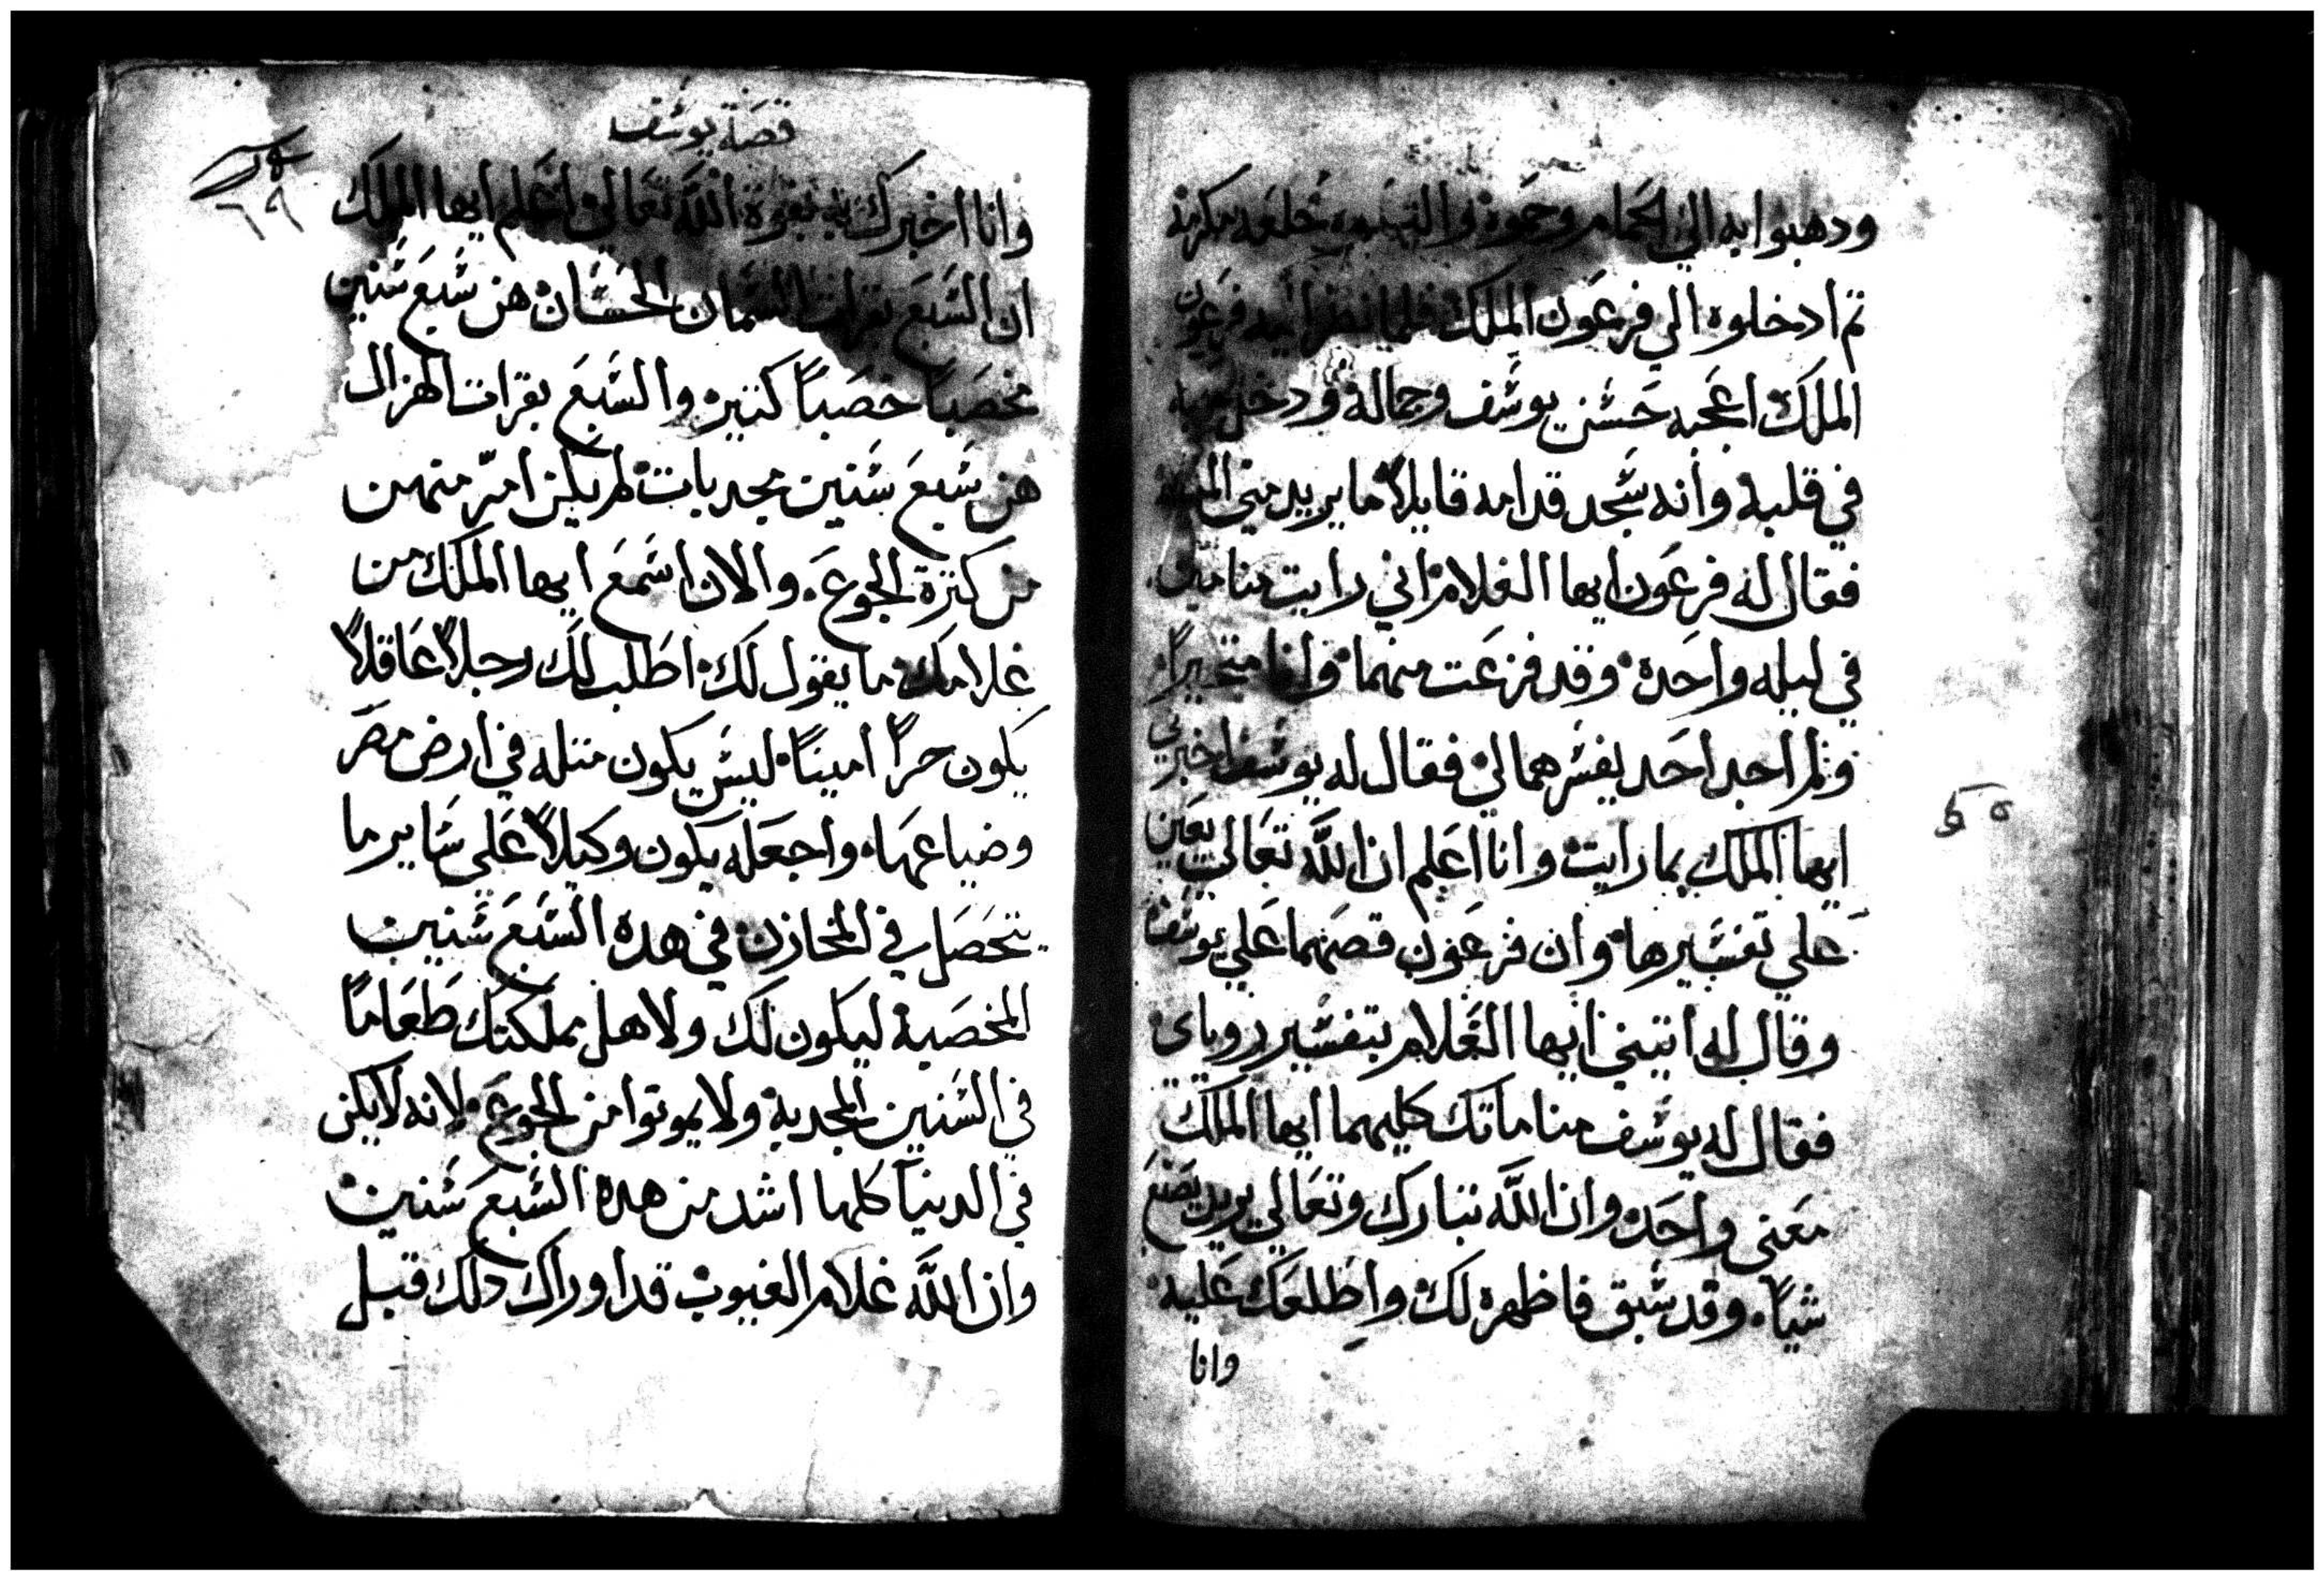 ودهبوا به الي الحمام وحموه والبسوه خلعه مكرمة
تم ادخلوه الي فرعون الملك فلما نظر اليه فرعون
الملك اعجبه حسن يوسف وجماله ودخل
في قلبه وانه سجد قدامه قايلاً ما يريد مني الملك
فقال له فرعون ايها الغلام اني رايت منامين
في ليله واحده وقد فزعت منهما وانا متحيراً
ولم اجد احد يفسرهما لي فقال له يوسف اخبرني
ايها الملك بما رايت وانا اعلم ان الله تعالي يعين
علي تفسيرها وان فرعون قصهما علي يوسف
وقال له انتبني ايها الغلام بتفسير روياي
فقال له يوسف مناماتك كليهما ايها الملك
معني واحد وان الله تبارك وتعالي يريد يصنع
شياً وقد سبق فاظهره لك واطلعك عليه
وانا
٥٥
قصة يوسف
٦٩
وانا اخبرك به بقوة الله تعالي اعلم ايها الملك
ان السبع بقرات السمان الحسان هن سبع سنين
مخصباً خصباً كتير والسبع بقرات الهزال
هن سبع سنين مجدبات لم يكن امرّ منهن
من كترة الجوع والان اسمع ايها الملك من
غلامك ما يقول لك اطلب لك رجلاً عاقلاً
يكون حراً اميناً ليس يكون متله في ارض مصر
وضياعها واجعله يكون وكيلاً علي ساير ما
يتحصل في المخازن في هده السبع سنين
المخصبة ليكون لك ولاهل مملكتك طعاماً
في السنين المجدبة ولا يموتوا من الجوع لانه لا يكن
في الدنيا كلها اشد من هده السبع سنين
وان الله علام الغيوب قد اوراك دلك قبل